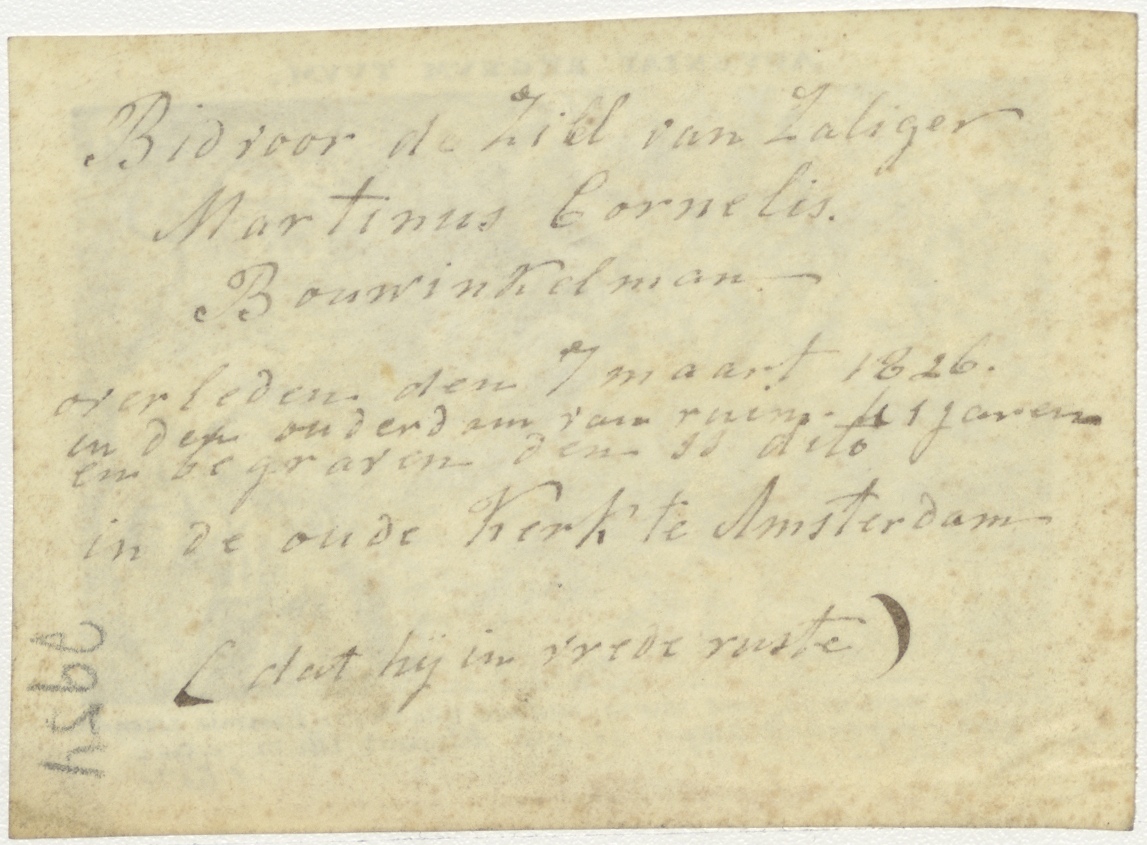 Bid voor de Ziel van Zaliger
Martinus Cornelis.
Bouwinkelman
overleden den 7 maart 1826.
in den ouderdom van ruim 41 jaren
en begraven den 11 dito
in de oude Kerk te Amsterdam
(dat hij in vrede ruste)